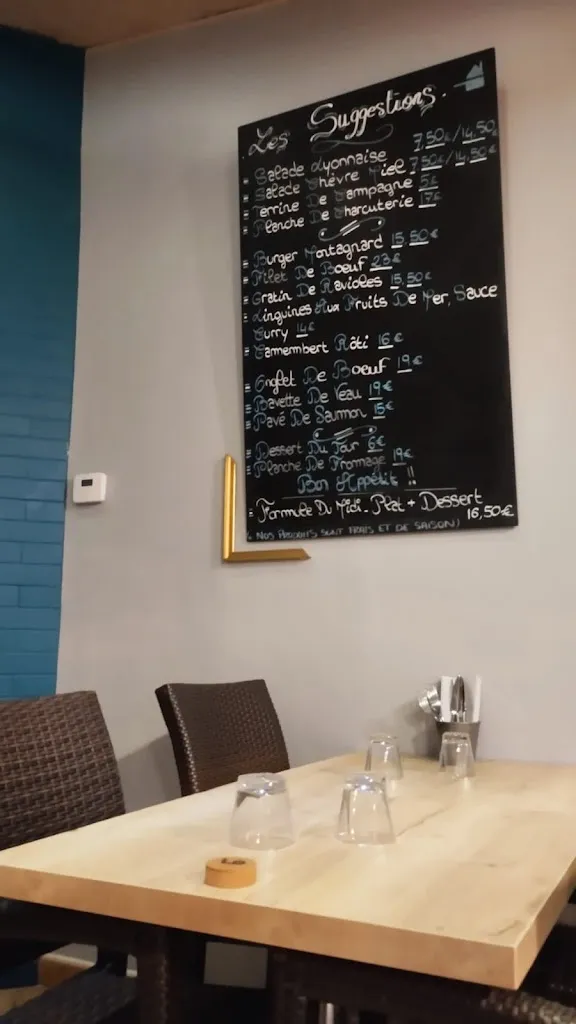 Les Suggestions.
Salade Lyonnaise 7,50€/14,50€
Salade Chèvre Miel 7,50€/14,50€
Terrine De Campagne 5€
Planche De Charcuterie 17€
Burger Montagnard 15,50€
Filet De Boeuf 23€
Gratin De Ravioles 15,50€
Linguines Aux Fruits De Mer, Sauce
Curry 14€
Camembert Rôti 16€
Onglet De Boeuf 19€
Bavette De Veau 19€
Pavé De Saumon 15€
Dessert Du Jour 6€
Planche De Fromage 19€
Bon Appétit !!
Formule Du Midi - Plat + Dessert
16,50€
NOS PRODUITS SONT FRAIS ET DE SAISON!